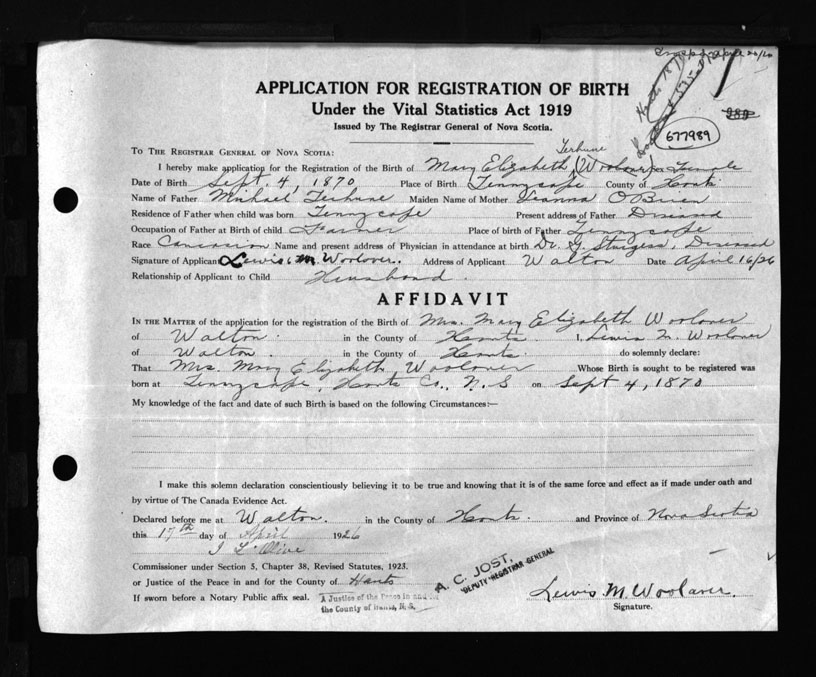 APPLICATION FOR REGISTRATION OF BIRTH
Under the Vital Statistics Act 1919
Issued by The Registrar General of Nova Scotia.
677989
To The Registrar General of Nova Scotia:
Terhune
I hereby make application for the Registration of the Birth of Mary Elizabeth (Woolaver) Female
Date of Birth Sept. 4, 1870 Place of Birth Tennycape County of Hants
Name of Father Michael Terhune Maiden Name of Mother Leanna O'Brien
Residence of Father when child was born Tennycape Present address of Father Deceased
Occupation of Father at Birth of child Farmer Place of birth of Father Tennycape
Race Caucasion Name and present address of Physician in attendance at birth Dr. G. Sturgess, Deceased
Signature of Applicant Lewis M. Woolaver. Address of Applicant Walton Date April 16/26
Relationship of Applicant to Child Husband.
AFFIDAVIT
In the Matter of the application for the registration of the Birth of Mrs. Mary Elizabeth Woolaver
of Walton. in the County of Hants. I, Lewis M. Woolaver
of Walton. in the County of Hants. do solemnly declare:
That Mrs. Mary Elizabeth Woolaver Whose Birth is sought to be registered was
born at Tennycape, Hants Co., N.S on Sept 4, 1870
My knowledge of the fact and date of such Birth is based on the following Circumstances:—
I make this solemn declaration conscientiously believing it to be true and knowing that it is of the same force and effect as if made under oath and
by virtue of The Canada Evidence Act.
Declared before me at Walton. in the County of Hants. and Province of Nova Scotia
this 17th day of April 1926
Commissioner under Section 5, Chapter 38, Revised Statutes, 1923.
or Justice of the Peace in and for the County of Hants
If sworn before a Notary Public affix seal. A Justice of the Peace in and for
the County of Hants, N.S.
A. C. JOST,
DEPUTY REGISTRAR GENERAL
Lewis M. Woolaver.
Signature.